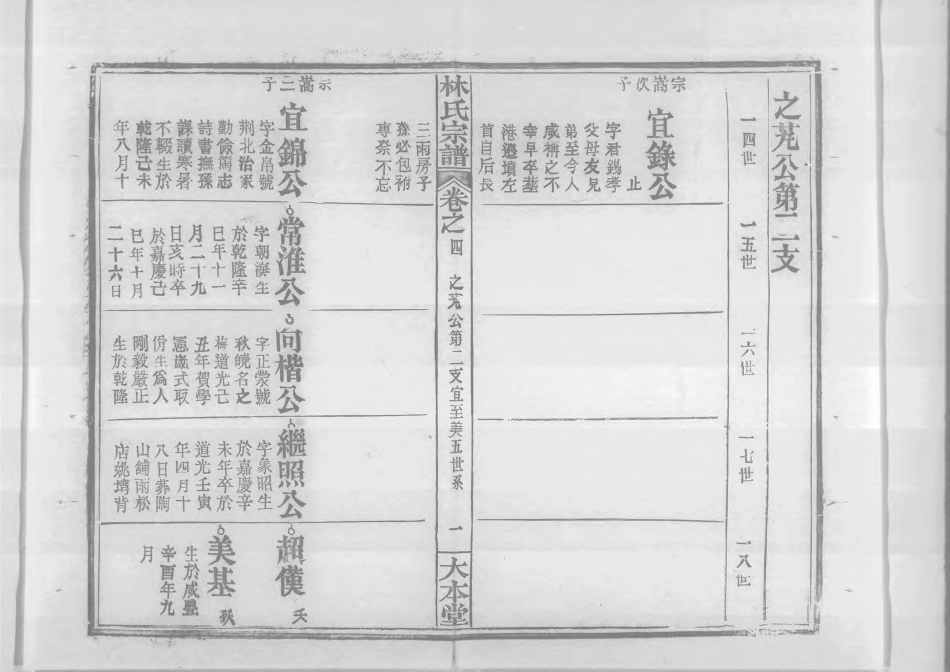 之芃公第二支
一四世
一五世
一六世
一七世
一八世
宗嵩次子
宜錄公
止
字君錫孝
父母友兄
弟至今人
咸稱之不
幸早卒塟
港邊墳左
首自后長
三兩房子
孫必包袝
專祭不忘
林氏宗譜
卷之四
之芃公第二支宜至美五世系
一
大本堂
示嵩二子
宜錦公
字金帛號
荆北治家
勤儉篤志
詩書撫孫
課讀寒暑
不輟生於
乾隆己未
年八月十
常淮公
字朝海生
於乾隆辛
巳年十一
月二十九
日亥時卒
於嘉慶己
巳年十月
二十六日
向楷公
字正蒙號
秋曉名之
梅道光己
丑年賀學
憲歲式取
佾生爲人
剛毅嚴正
生於乾隆
繼照公
字象昭生
於嘉慶辛
未年卒於
道光壬寅
年四月十
八日葬陶
山鋪雨松
店姚塆背
超僕
夭
美基
秋
生於咸豐
辛酉年九
月